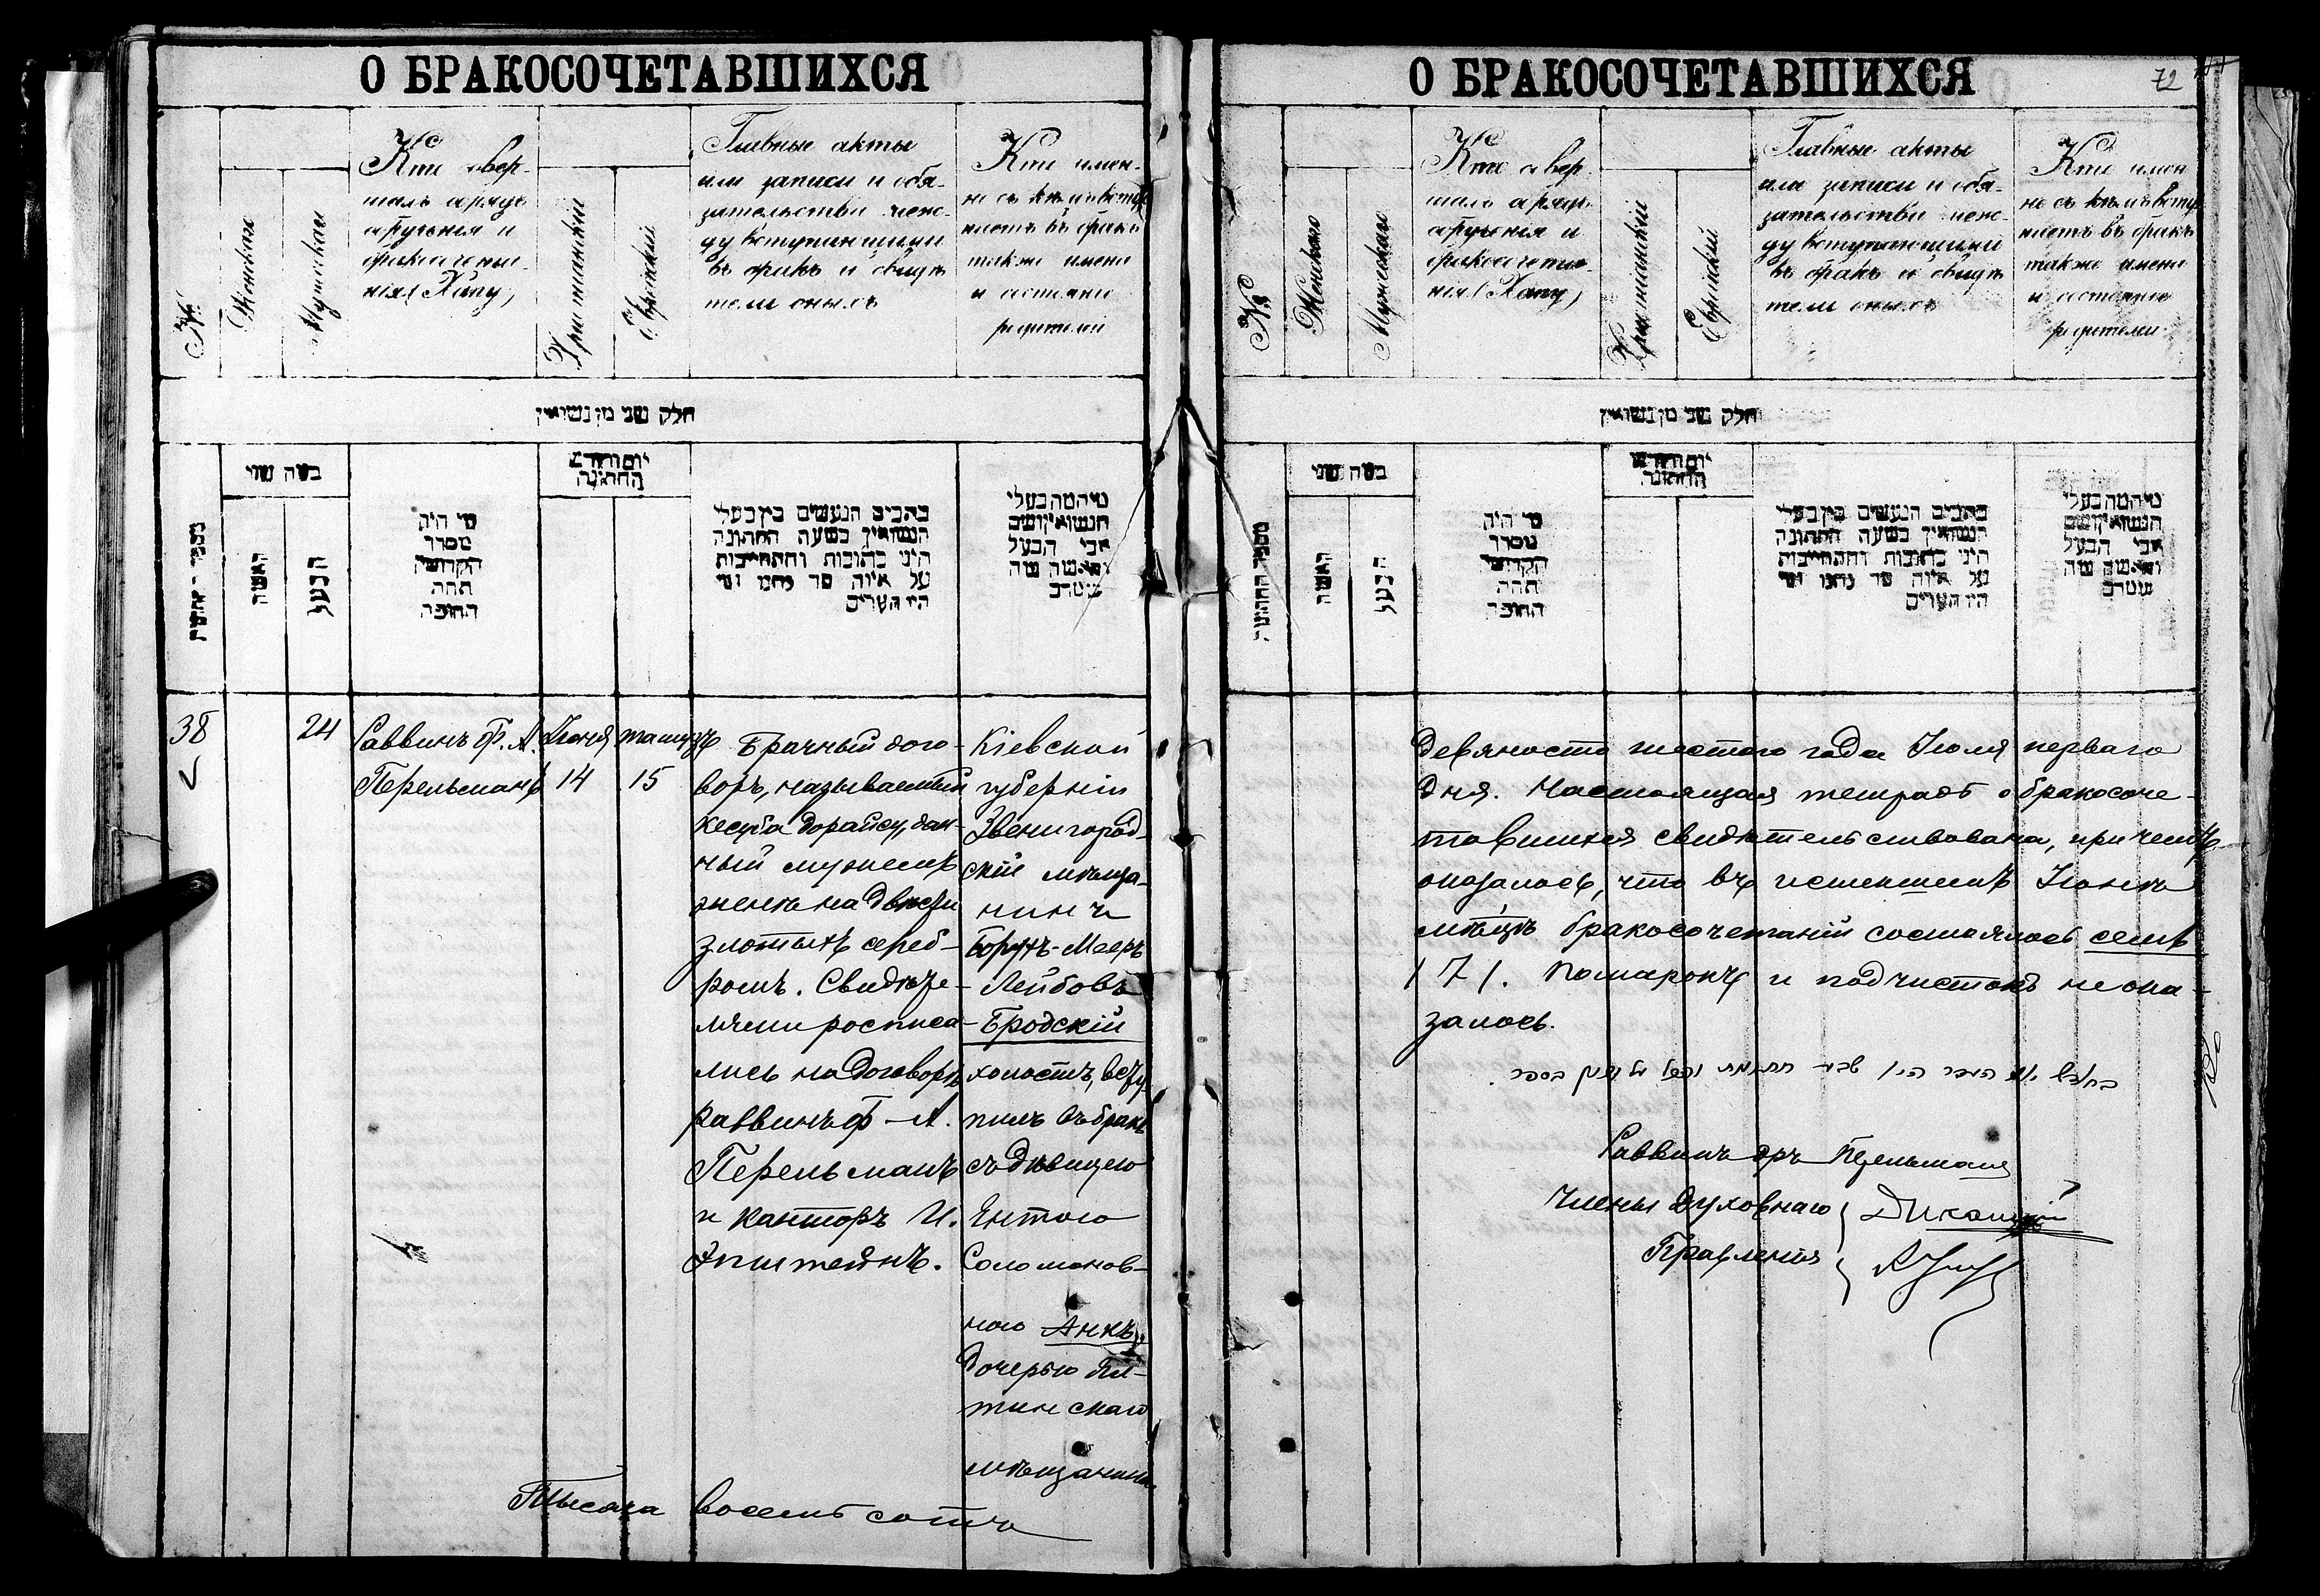 О БРАКОСОЧЕТАВШИХСЯ
№
Женскаго
Мужскаго
Кто совер-
шалъ обрядъ
обрученія и
бракосочета-
нія (Хупу)
Христіанскій
Еврейскій
Главные акты
или записи и обя-
зательства меж-
ду вступающими
въ бракъ и свидѣ-
тели оныхъ
Кто имен-
но съ кѣмъ всту-
паетъ въ бракъ
также имена
и состояніе
родителей
חלק שני מן נשואין
כמה שני
האשה
הבעל
מי היה
מסדר
הקדושין
תחת
החופה
יום וחדש
החתונה
כתבים הנעשים בין בעלי
הנשואין בשעה החתונה
היני כתובות והתחייבות
על איזה סך נתנו ומי
היו העדים
מי המה בעלי
הנשואין ושם
אבי הבעל
והאשה
38
24
Раввинъ Ф. А.
Перельманъ
Іюня
14
тамузъ
15
Брачный дого-
воръ, называемый
кесуба дорайсу, дан-
ный мужемъ
женѣ на двѣсти
злотыхъ сереб-
ромъ. Свидѣте-
лями росписа-
лись на договорѣ
раввинъ Ф. А.
Перельманъ
и канторъ И.
Эпштейнъ.
Кіевской
губерніи
Звенигород-
скій мѣща-
нинъ
Борухъ-Мееръ
Лейбовъ
Бродскій
холостъ, всту-
пилъ въ бракъ
съ дѣвицею
Ентою
Соломонов-
ною Анкъ,
дочерью
мѣщанина
Тысяча восемь сотъ
О БРАКОСОЧЕТАВШИХСЯ
72
№
Женскаго
Мужскаго
Кто совер-
шалъ обрядъ
обрученія и
бракосочета-
нія (Хупу)
Христіанскій
Еврейскій
Главные акты
или записи и обя-
зательства меж-
ду вступающими
въ бракъ и свидѣ-
тели оныхъ
Кто имен-
но съ кѣмъ всту-
паетъ въ бракъ
также имена
и состояніе
родителей
חלק שני מן נשואין
מספר החתונה
כמה שני
האשה
הבעל
מי היה
מסדר
הקדושין
תחת
החופה
יום וחדש
החתונה
כתבים הנעשים בין בעלי
הנשואין בשעה החתונה
היני כתובות והתחייבות
על איזה סך נתנו ומי
היו העדים
מי המה בעלי
הנשואין ושם
אבי הבעל
והאשה
девяносто шестого года Іюля перваго
дня. Настоящая тетрадь о бракосоче-
тавшихся свидѣтельствована, при чемъ
оказалось, что въ истекшемъ Іюнѣ
мѣсяцѣ бракосочетаній состоялось семь
/7/. Помарокъ и подчистокъ не ока-
залось.
Раввинъ др. Перельманъ
Члены Духовнаго
Правленія